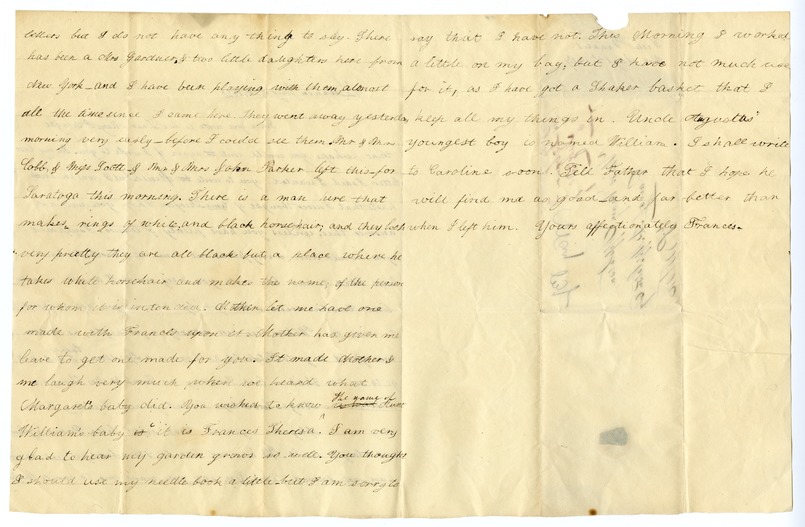 letters but I do not have any thing to say. There
has been a Mrs. Gardner, & two little daughters here from
New York—and I have been playing with them almost
all the time since I came here. They went away yesterda
morning very early—before I could see them. Mr & Mrs
Cobb, & Miss Scott & Mr & Mrs John Parker left this—for
Saratoga this morning. There is a man here that
makes rings of white, and black horsehair, and they look
very pretty they are all black but a place, where he
takes white horsehair and makes the name, of the person
for whom it is intended. Mother let me have one
made with Francis upon it. Mother has given me
leave to get one made for you. It made Mother &
me laugh very much, when we heard what
Margaret's baby did. You wished to know the name of Aunt
William's baby it is Frances Theresa. I am very
glad to hear my garden grows so well. You thought
I should use my needle book a little—but I am sorry to
say that I have not. This Morning I worked
a little on my bag; but I have not much use
for it, as I have got a Shaker basket that I
keep all my things in. Uncle Augustus'
youngest boy is named William. I shall write
to Caroline soon. Tell Father that I hope he
will find me as good and far better than
when I left him. Yours affectionately Frances—